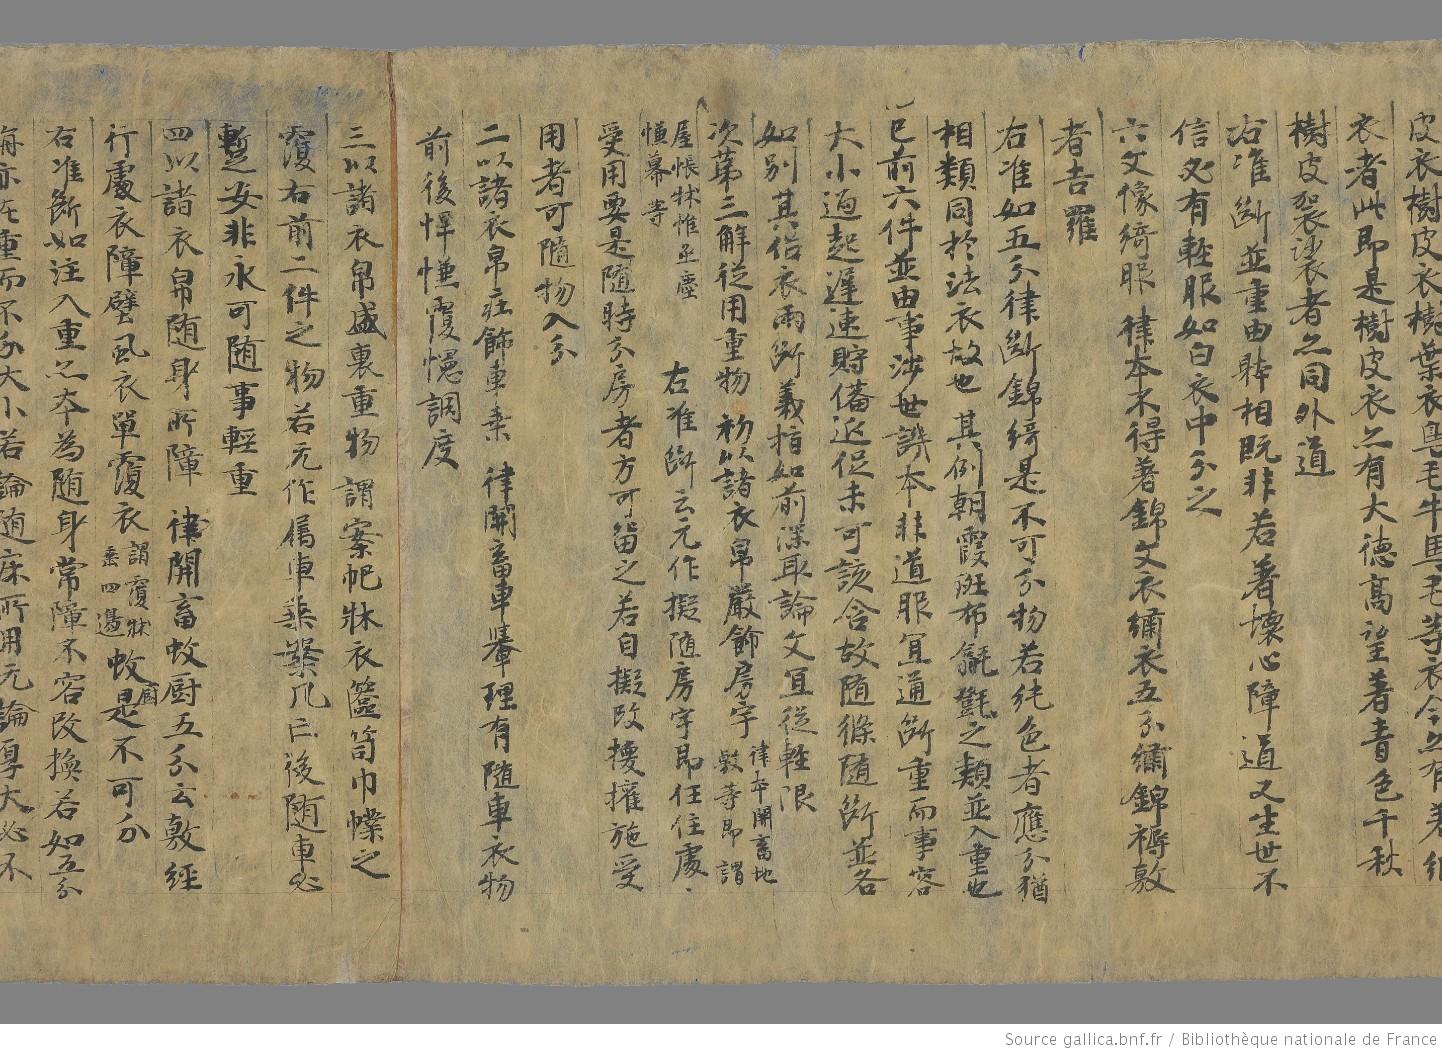 皮衣樹皮衣樹葉衣
衣者此即是樹皮衣亦有大德高望著青色千秋
樹皮袈裟者亦同外道
右准斷並重由躰相既非若著壞心障道又生世不
信必有輕服如白衣中分之
六文像綺服律本不得著錦文衣繡衣五分繡錦褥敷
者吉羅
右准如五分律斷錦綺是不可分物若純色者應分猶
相類同於法衣故也其例朝霞斑布氍氎之類並入重也
已前六件並由事涉世譏本非道服宜通斷重而事容
大小過起遲速貯僃返促未可該含故隨條隨斷並各
如別其俗衣兩斷義指如前深取論文宜從輕限
次第三解從用重物初以諸衣帛嚴飾房宇律本開畜地敷等即謂
屋帳牀帷承塵幰幕等
右准斷云元作擬隨房宇即任住處
受用要是隨時分房者方可留之若自擬改換擁施受
用者可隨物入分
二以諸衣帛莊飾車乘律開畜車轝理有隨車衣物
前後幝幰覆幰調度
三以諸衣帛盛裹重物謂案帊牀衣篋笥巾幞之
覆右前二件之物若元作屬車乘槃几已後隨車必
暫安非永可隨事輕重
四以諸衣帛隨身所障律開畜蚊廚五分云敷經
行處衣障壁風衣單覆衣謂覆牀垂四邊蚊廚是不可分
右准斷如注入重亦本為隨身常障不容改換若如五分
亦在重而不分大小若論隨床所用元論厚大必不